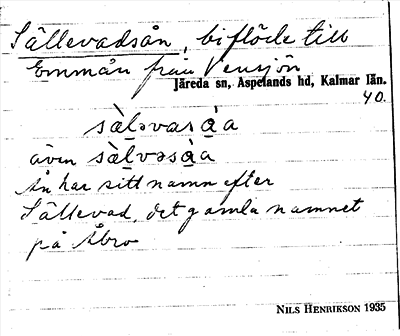 Sällevadsån, biflöde till
Emmån från Vensjön
Järeda sn, Aspelands hd, Kalmar län.
40.
sὰl̲əvasὰ̲a
även sὰl̲vəsὰ̲a
Ån har sitt namn efter
Sällevad, det gamla namnet
på Åbro
NILS HENRIKSON 1935